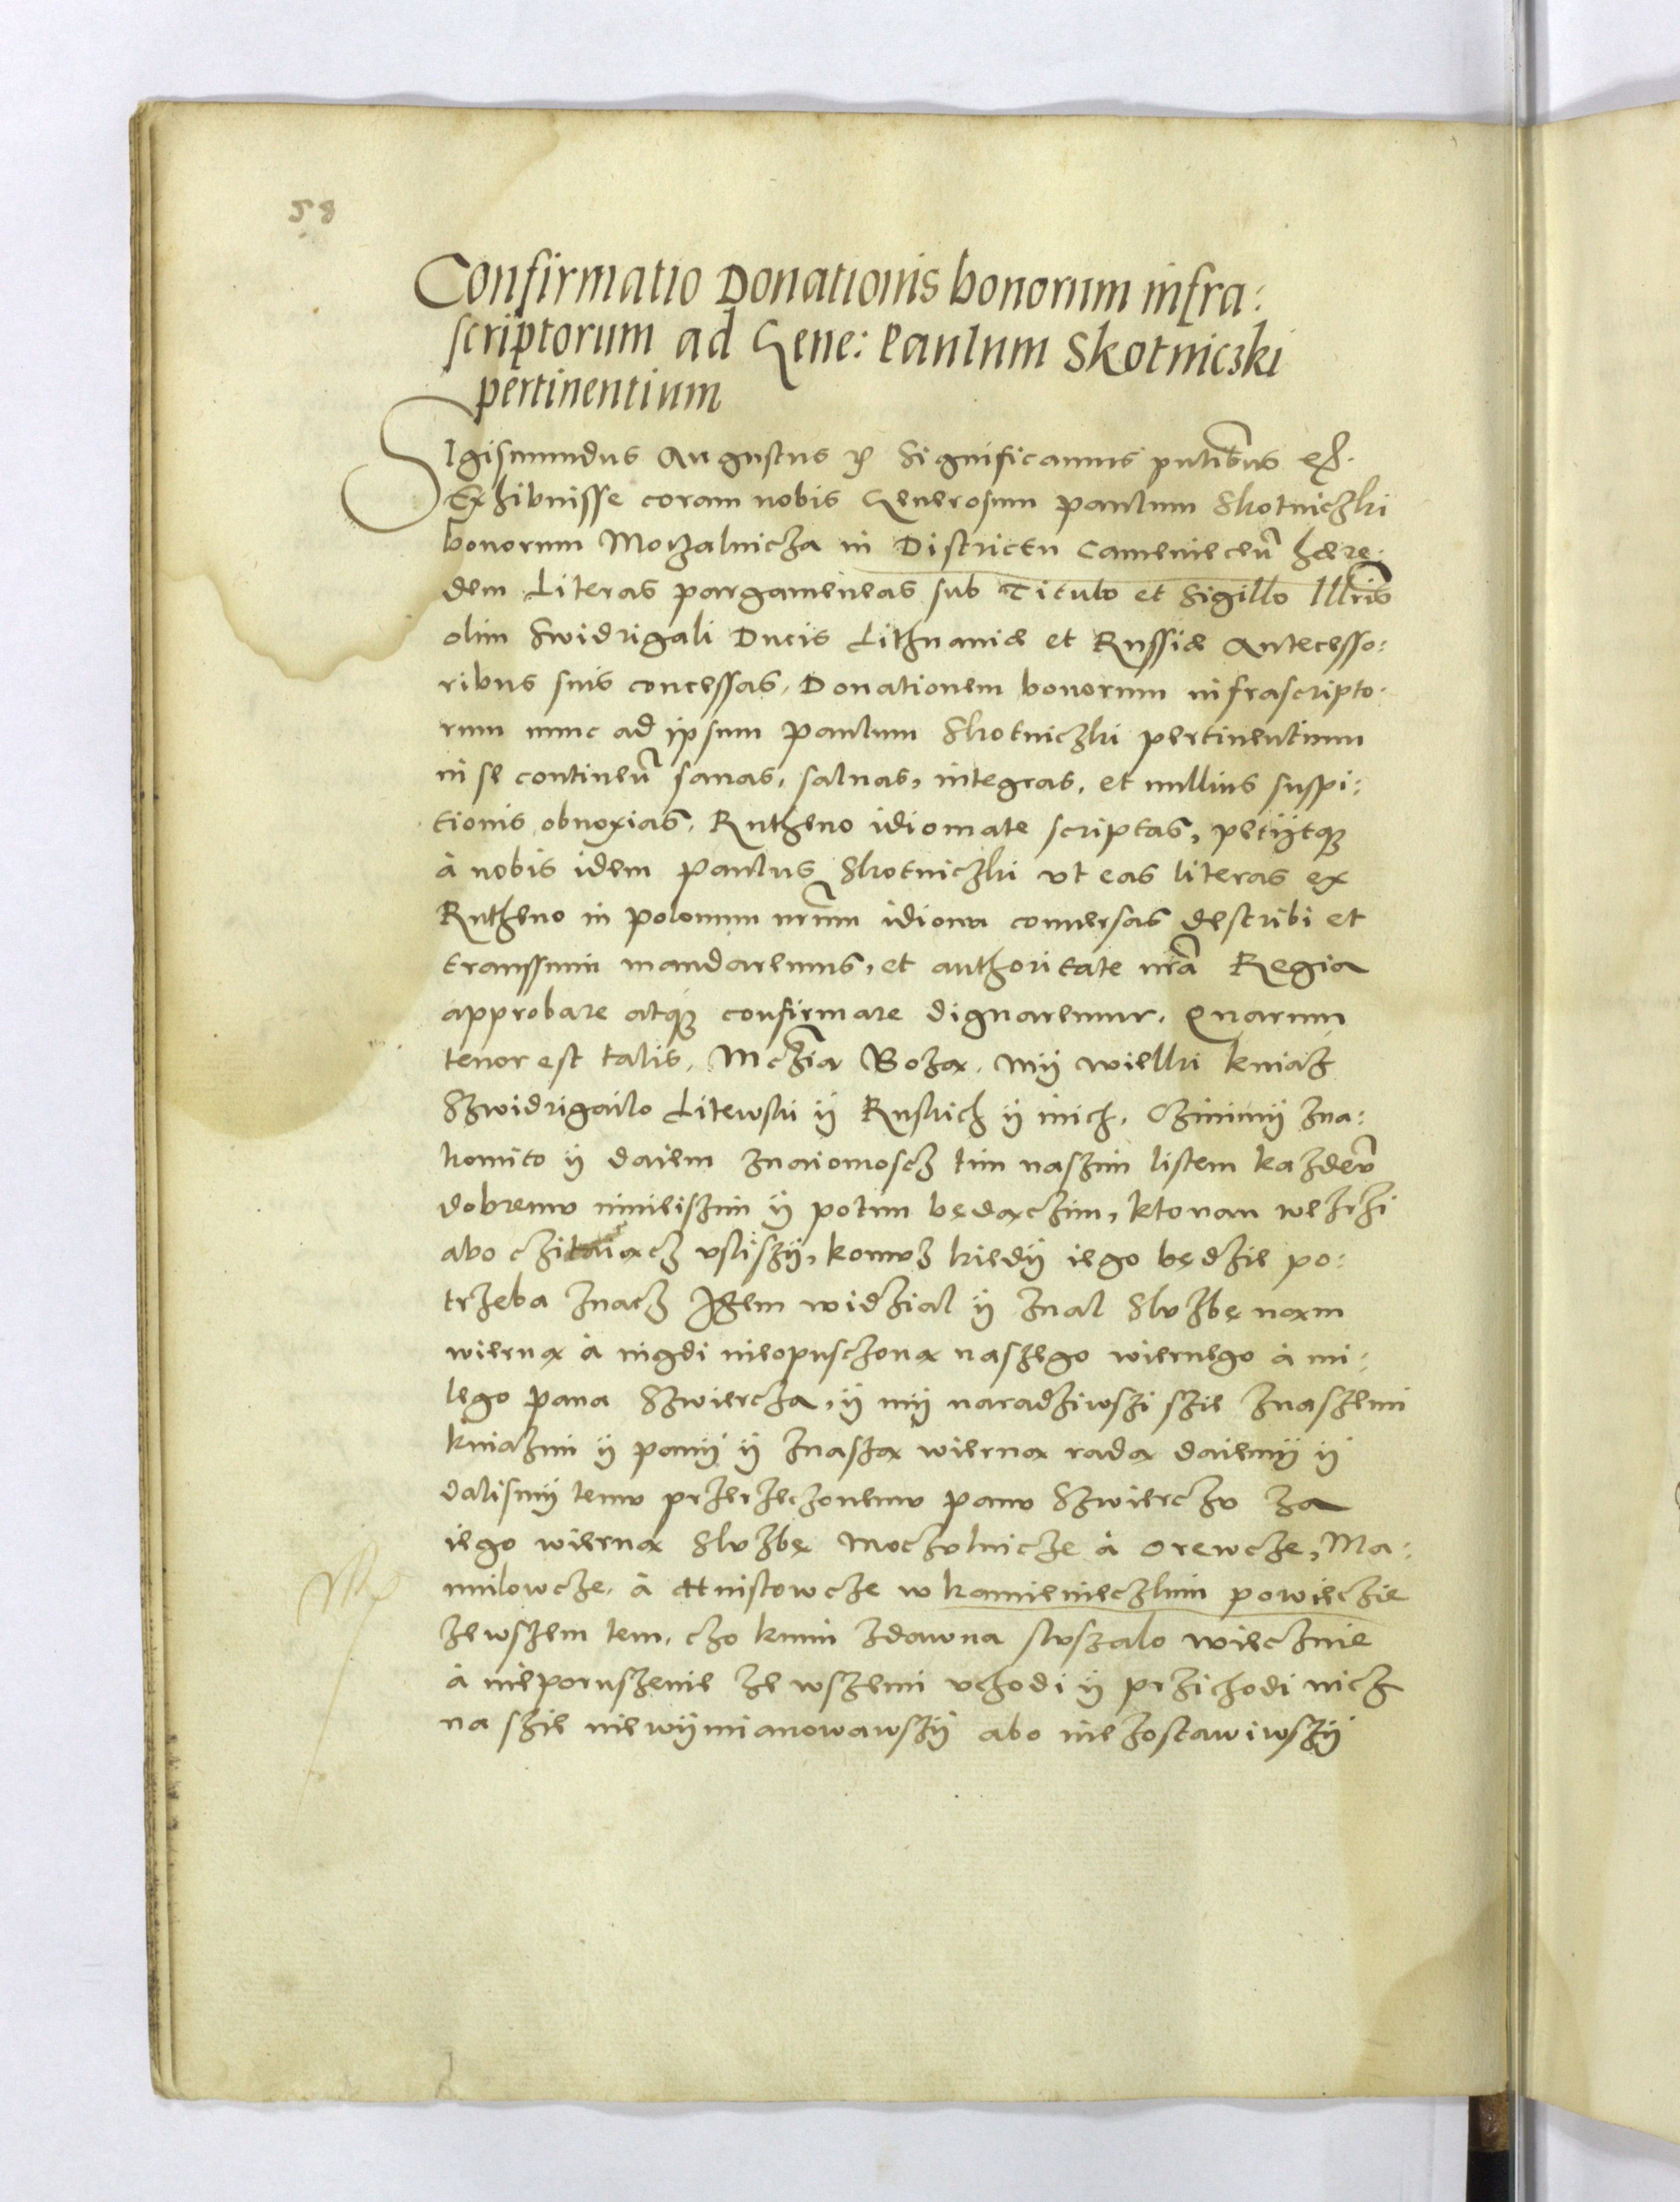 58
Confirmatio Donationis bonorum infra:
scriptorum ad Gene: Paulum Skotniczki
pertinentium
Sigismundus Augustus Significamus pntibus
Exhibuisse coram nobis Generosum Paulum Skotniczki
bonorum Moczalnicza in Districtu Cameneceñ hære-
dem Literas pargameneas sub Titulo et Sigillo Illris
olim Swidrigali Ducis Lithuaniæ et Russiæ Antecesso:
ribus suis concessas, Donationem bonorum infrascripto-
rum nunc ad ipsum Paulum Skotniczki pertinentium
in se contineñ sanas, saluas, integras, et nullius suspi:
tionis obnoxias, Rutheno idiomate scriptas, petijtq
à nobis idem Paulus Skotniczki vt eas literas ex
Rutheno in polonum nrum idioma conuersas describi et
transsumi mandaremus, et authoritate nra Regia
approbare atq confirmare dignaremur. Quarum
tenor est talis. Mczia Boza. my wielki kniaz
Szwidrigailo Litewski ÿ Ruskich ÿ inich. Czinimÿ zna:
komito ÿ daiem znaiomoscz tim naszim listem kazdeu
dobremu ninieiszim ÿ potim będaczim, kto nan weżrzi
abo vsliszÿ, komuz kiedÿ iego będzie po:
trzeba znacz Izem widzial ÿ znal Sluzbę nam
wierna à nigdi nieopusczona naszego wiernego à mi:
lego pana Szwiercza, ÿ mÿ naradziwszi szie znaszemi
kniazmi ÿ panÿ ÿ znasza wierna rada daiemÿ ÿ
dalismÿ temu przerzeczonemu panu Szwierczu za
iego wierna Sluzbę Moczulnicze à Orewcze, Ma:
milowcze, à Hnistowcze w kamienieczkim powieczie
zewszem tem, czo knim zdawna sluszalo wiecznie
à nieporuszenie ze wszemi vchodi ÿ przichodi nicz
na szie niewÿmianowawszÿ abo nie zostawiwszÿ